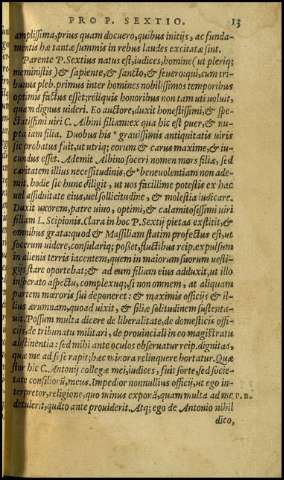 PRO P. SEXTIO. 13
amplissima, prius quam docuero, quibus initijs, ac funda-
mentis hæ tantæ summis in rebus laudes excitatæ sint.
Parente P. Sextius natus est, iudices, homine (ut pleriq;
meministis) & sapiente, & sancto, & seuero: qui, cum tri-
bunus pleb. primus inter homines nobilissimos temporibus
optimis factus esset; reliquis honoribus non tam uti uoluit,
quam dignus uideri. Eo auctore, duxit honestissimi, & spe-
ctatissimi uiri C. Albini filiam: ex qua hic est puer, & nu-
pta iam filia. Duobus his grauissimis antiquitatis uiris
sic probatus fuit, ut utriq; eorum & carus maxime, & iu-
cundus esset. Ademit Albino soceri nomen mors filiæ, sed
caritatem illius necessitudinis, & beneuolentiam non ade-
mit. hodie sic hunc diligit, ut uos facillime potestis ex hac
uel assiduitate eius, uel sollicitudine, & molestia iudicare.
Duxit uxorem, patre uiuo, optimi, & calamitosissimi uiri
filiam L. Scipionis. Clara in hoc P. Sextij pietas exstitit, &
omnibus grata: quod & Massiliam statim profectus est, ut
socerum uidere, consolariq; posset, fluctibus reip. expulsum
in alienis terris iacentem, quem in maiorum suorum uesti-
gijs stare oportebat; & ad eum filiam eius adduxit, ut illo
insperato aspectu, complexuq; si non omnem, at aliquam
partem mæroris sui deponeret: & maximis officijs & il-
lius ærumnam, quoad uixit, & filiæ solitudinem sustenta-
uit. Possum multa dicere de liberalitate, de domesticis offi-
cijs, de tribunatu militari, de prouinciali in eo magistratu
abstinentia: sed mihi ante oculos obseruatur reip. dignitas,
quæ me ad se se rapit; hæc minora relinquere hortatur. Quæ
stor hic C. Antonij collegæ mei, iudices, fuit sorte, sed socie-
tate consiliorum, meus. Impedior nonnullius officij, ut ego in-
terpretor, religione, quo minus exponam, quam multa ad me P. R.
detulerit, quanto ante prouiderit. Atq; ego de Antonio nihil
dico,